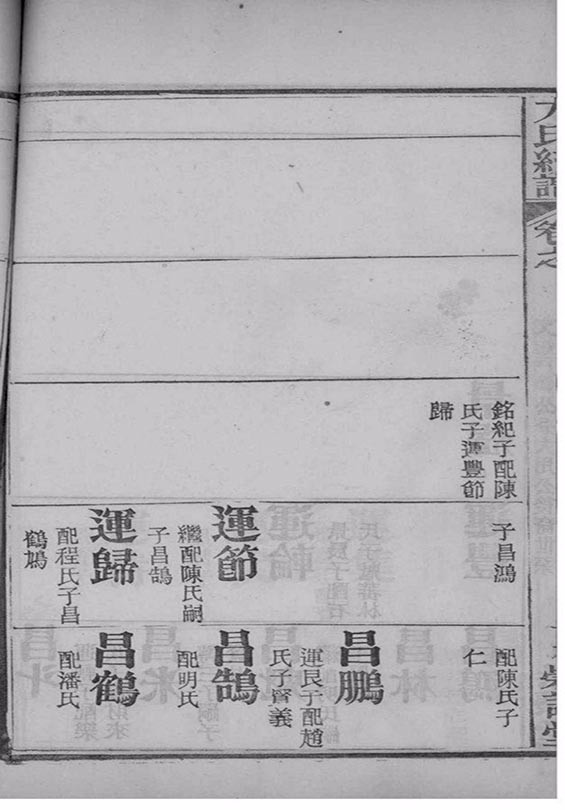 卷之
銘紀子配陳
氏子運豐節
歸
子昌鴻
運節
繼配陳氏嗣
子昌鵠
運歸
配程氏子昌
鶴鳩
配陳氏子
仁
昌鵬
運艮子配趙
氏子義
昌鵠
配明氏
昌鶴
配潘氏